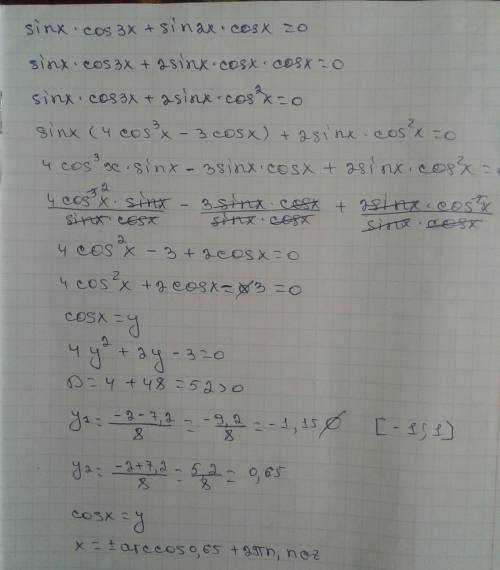 sinx · cos3x + sin2x · cosx = 0
sinx · cos3x + 2sinx · cosx · cosx = 0
sinx · cos3x + 2sinx · cos²x = 0
sinx (4cos³x - 3cosx) + 2sinx · cos²x = 0
4cos³x · sinx - 3sinx · cosx + 2sinx · cos²x =
4cos³²x · sinx / sinx · cosx - 3sinx · cosx / sinx · cosx + 2sinx · cos²x / sinx · cosx
4cos²x - 3 + 2cosx = 0
4cos²x + 2cosx - 3 = 0
cosx = y
4y² + 2y - 3 = 0
D = 4 + 48 = 52 > 0
y₁ = -2-7,2 / 8 = -9,2 / 8 = -1,15 ∅ [-1; 1]
y₂ = -2+7,2 / 8 = 5,2 / 8 = 0,65
cosx = y
x = ± arccos 0,65 + 2πn, n∈z